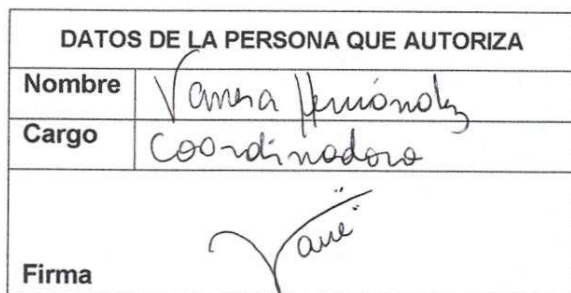 DATOS DE LA PERSONA QUE AUTORIZA
Nombre Vanesa Hernández
Cargo Coordinadora
Firma